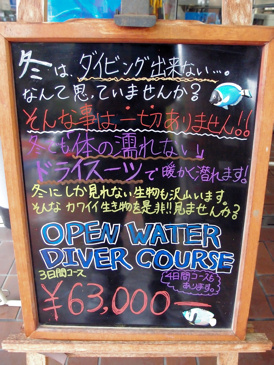 冬は、ダイビング出来ない…。
なんて思っていませんか?
そんな事は、一切ありません!!
冬でも体の濡れない↓
ドライスーツで暖かく潜れます!
冬にしか見れない生物も沢山います。
そんなカワイイ生き物を是非!!見ませんか?
OPEN WATER
DIVER COURSE
3日間コース
4日間コースも
あります。
¥63,000―